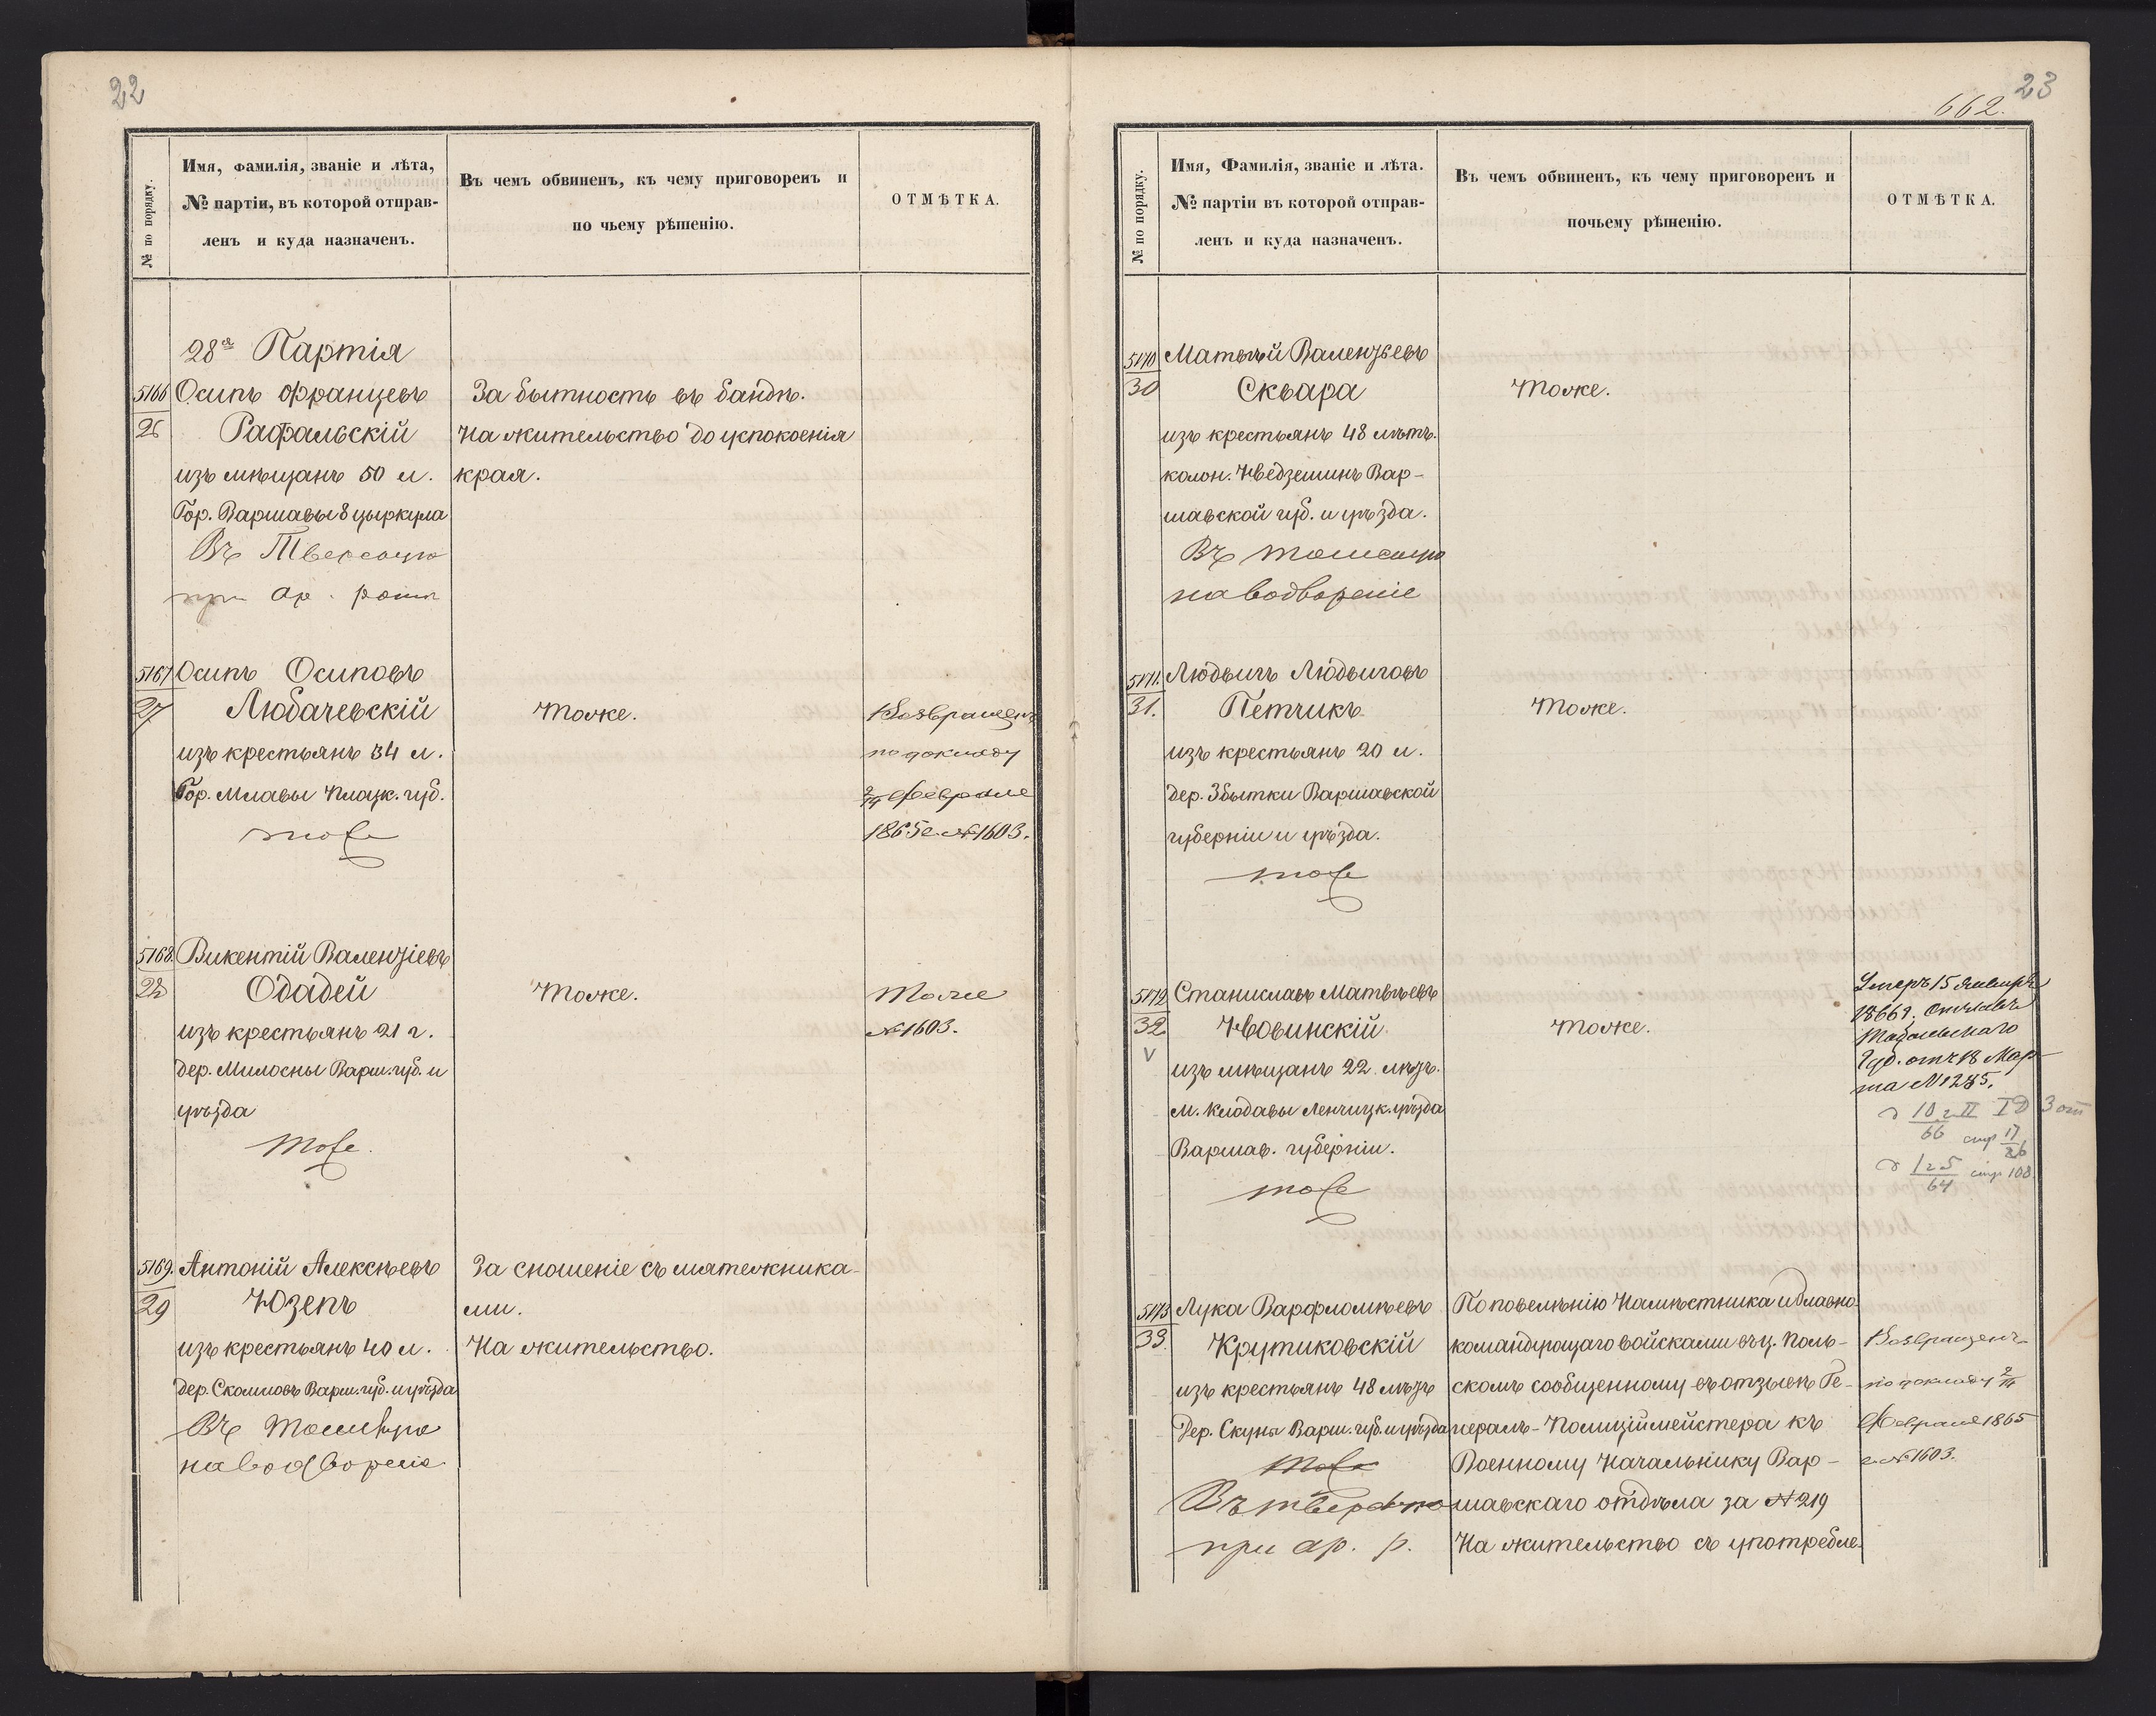 22
№ по порядку.
Имя, фамилія, званіе и лѣта,
№ партіи, въ которой отправ-
ленъ и куда назначенъ.
Въ чемъ обвиненъ, къ чему приговоренъ и
по чьему рѣшенію.
ОТМѢТКА.
28я Партія
5166
26
Осипъ Францевъ
Рафальскій
изъ мѣщанъ 50 л.
Гор. Варшавы 8 цыркула
Въ Тверскую
при ар. ротѣ
За бытность въ бандѣ.
На жительство до успокоенія
края.
5167
27
Осипъ Осиповъ
Любачевскій
изъ крестьянъ 34 л.
Гор. Млавы Плоцк. губ.
тоже
Тоже.
Возвращенъ
по докладу
2/14 Февраля
1865 г. № 1603.
5168.
28
Викентій Валенціевъ
Ододей
изъ крестьянъ 21 г.
дер. Милосны Варш. губ. и
уѣзда
тоже.
Тоже.
Тоже
№ 1603.
5169.
29
Антоній Алексѣевъ
Юзепъ
изъ крестьянъ 40 л.
дер. Варш. губ. и уѣзда
Въ Томскую
на водвореніе
За сношеніе съ мятежника-
ми.
На жительство.
23
662.
№ по порядку.
Имя, Фамилія, званіе и лѣта.
№ партіи въ которой отправ-
ленъ и куда назначенъ.
Въ чемъ обвиненъ, къ чему приговоренъ и
почьему рѣшенію.
ОТМѢТКА.
5170
30
Матвѣй Валенціевъ
Сквара
изъ крестьянъ 48 лѣтъ.
колон. Вар-
шавской губ. и уѣзда.
Въ томскую
на водвореніе
Тоже.
5171.
31.
Людвигъ Людвиговъ
Петчикъ
изъ крестьянъ 20 л.
дер. Збытки Варшавской
губерніи и уѣзда.
тоже
Тоже.
5172
32
V
Станиславъ Матвѣевъ
Нововинскій
изъ мѣщанъ 22 лѣтъ.
м. Клодавы Ленчицк. уѣзда
Варшав. губерніи.
тоже
Тоже.
Умеръ 15 Января
1866 г.
Губ. отъ 18 Мар-
та № 1285.
10 г II I D 3 от
66 стр 17
26
1 г 5 стр 108
64
5173
33.
Лука Варфоломѣевъ
Крутиковскій
изъ крестьянъ 48 лѣтъ
Дер. Скуны Варш. губ. и уѣзда
тоже
Въ тверскую
при ар. р.
По повелѣнію Намѣстника и Главно-
командующаго войсками въ ц. Поль-
скомъ сообщенному въ отзывѣ Ге-
нералъ-Полиціймейстера къ
Военному Начальнику Вар-
шавскаго отдѣла за № 219
На жительство съ употребле-
Возвращенъ
по докладу 2/14
Февраля 1865
г. № 1603.